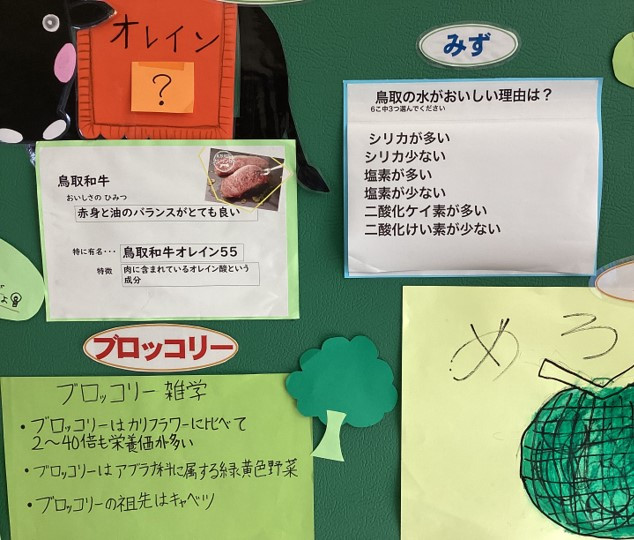 オレイン
?
みず
鳥取の水がおいしい理由は？
6こ中3つ選んでください
シリカが多い
シリカ少ない
塩素が多い
塩素が少ない
二酸化ケイ素が多い
二酸化けい素が少ない
鳥取和牛
おいしさの ひみつ
赤身と油のバランスがとても良い
特に有名・・・ 鳥取和牛オレイン55
特徴 肉に含まれているオレイン酸という
成分
ブロッコリー
ブロッコリー 雑学
・ブロッコリーはカリフラワーに比べて
2〜40倍も栄養価が多い
・ブロッコリーはアブラナ科に属する緑黄色野菜
・ブロッコリーの祖先はキャベツ
めろ